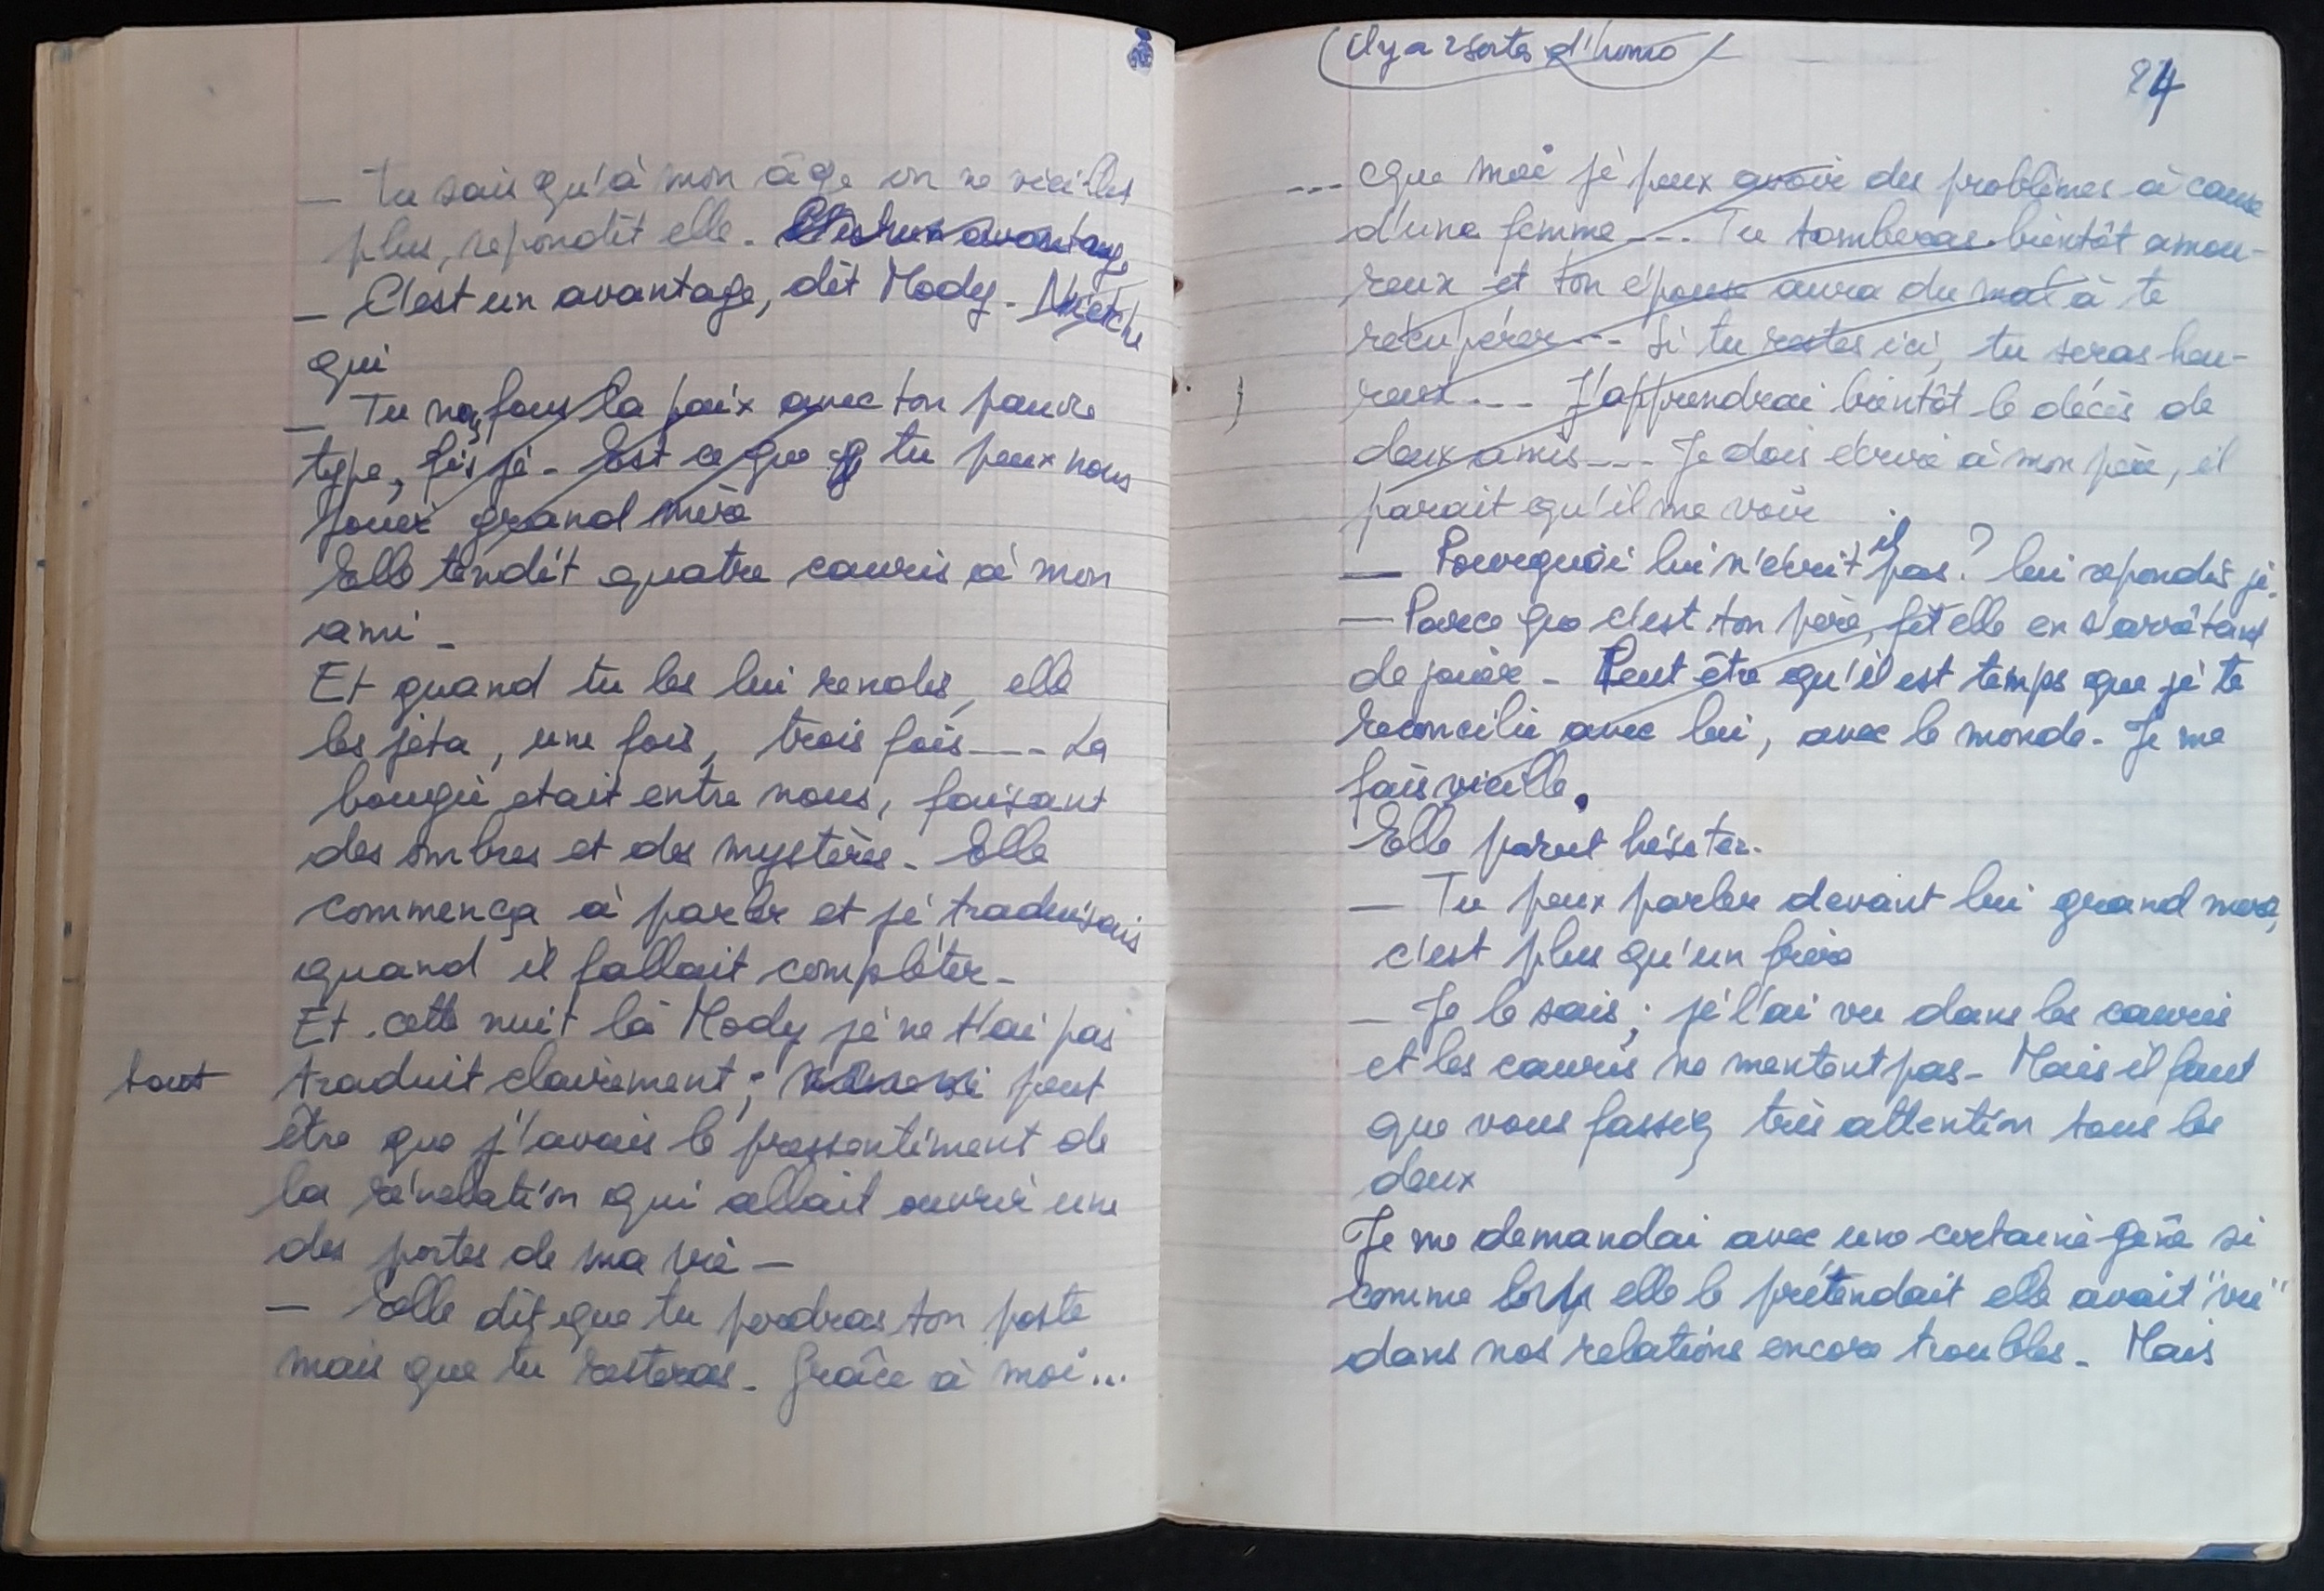 — Tu sais qu'à mon âge on ne vieillit
plus, repondit elle. C'est un avantage
— C'est un avantage, dit Mody. Nietche
qui
— Tu nous fous la paix avec ton pauvre
type, fis je. Est ce que tu peux nous
jouer grand mère
Elle tendit quatre cauris à mon
ami.
Et quand tu les lui rendis, elle
les jeta, une fois, trois fois --- La
bougie etait entre nous, faisant
des ombres et des mystères. Elle
commença à parler et je traduisais
quand il fallait compléter.
Et cette nuit là Mody je ne t'ai pas
tout traduit clairement ; peut
être que j'avais le pressentiment de
la révelation qui allait ouvrir une
des portes de ma vie —
— Elle dit que tu perdras ton poste
mais que tu resteras. Grâce à moi...
Il y a 2 sortes d'homo
84
--- que moi je peux avoir des problèmes à cause
d'une femme --- Tu tomberas bientôt amou-
reux et ton épouse aura du mal à te
récupérer --- Si tu restes ici, tu seras heu-
reux --- J'apprendrai bientôt le décès de
deux amis --- Je dois écrire à mon père, il
parait qu'il me voir
— Pourquoi lui n'écrit il pas ? lui repondis je.
— Parce que c'est ton père, fit elle en s'arrêtant
de jouer. Peut être qu'il est temps que je te
reconcilie avec lui, avec le monde. Je me
fais vieille.
Elle parut hésiter.
— Tu peux parler devant lui grand mère,
c'est plus qu'un frère
— Je le sais ; je l'ai vu dans les cauris
et les cauris ne mentent pas. Mais il faut
que vous fassiez très attention tous les
deux
Je me demandai avec une certaine gêne si
comme elle le prétendait elle avait "vu"
dans nos relations encore troubles. Mais